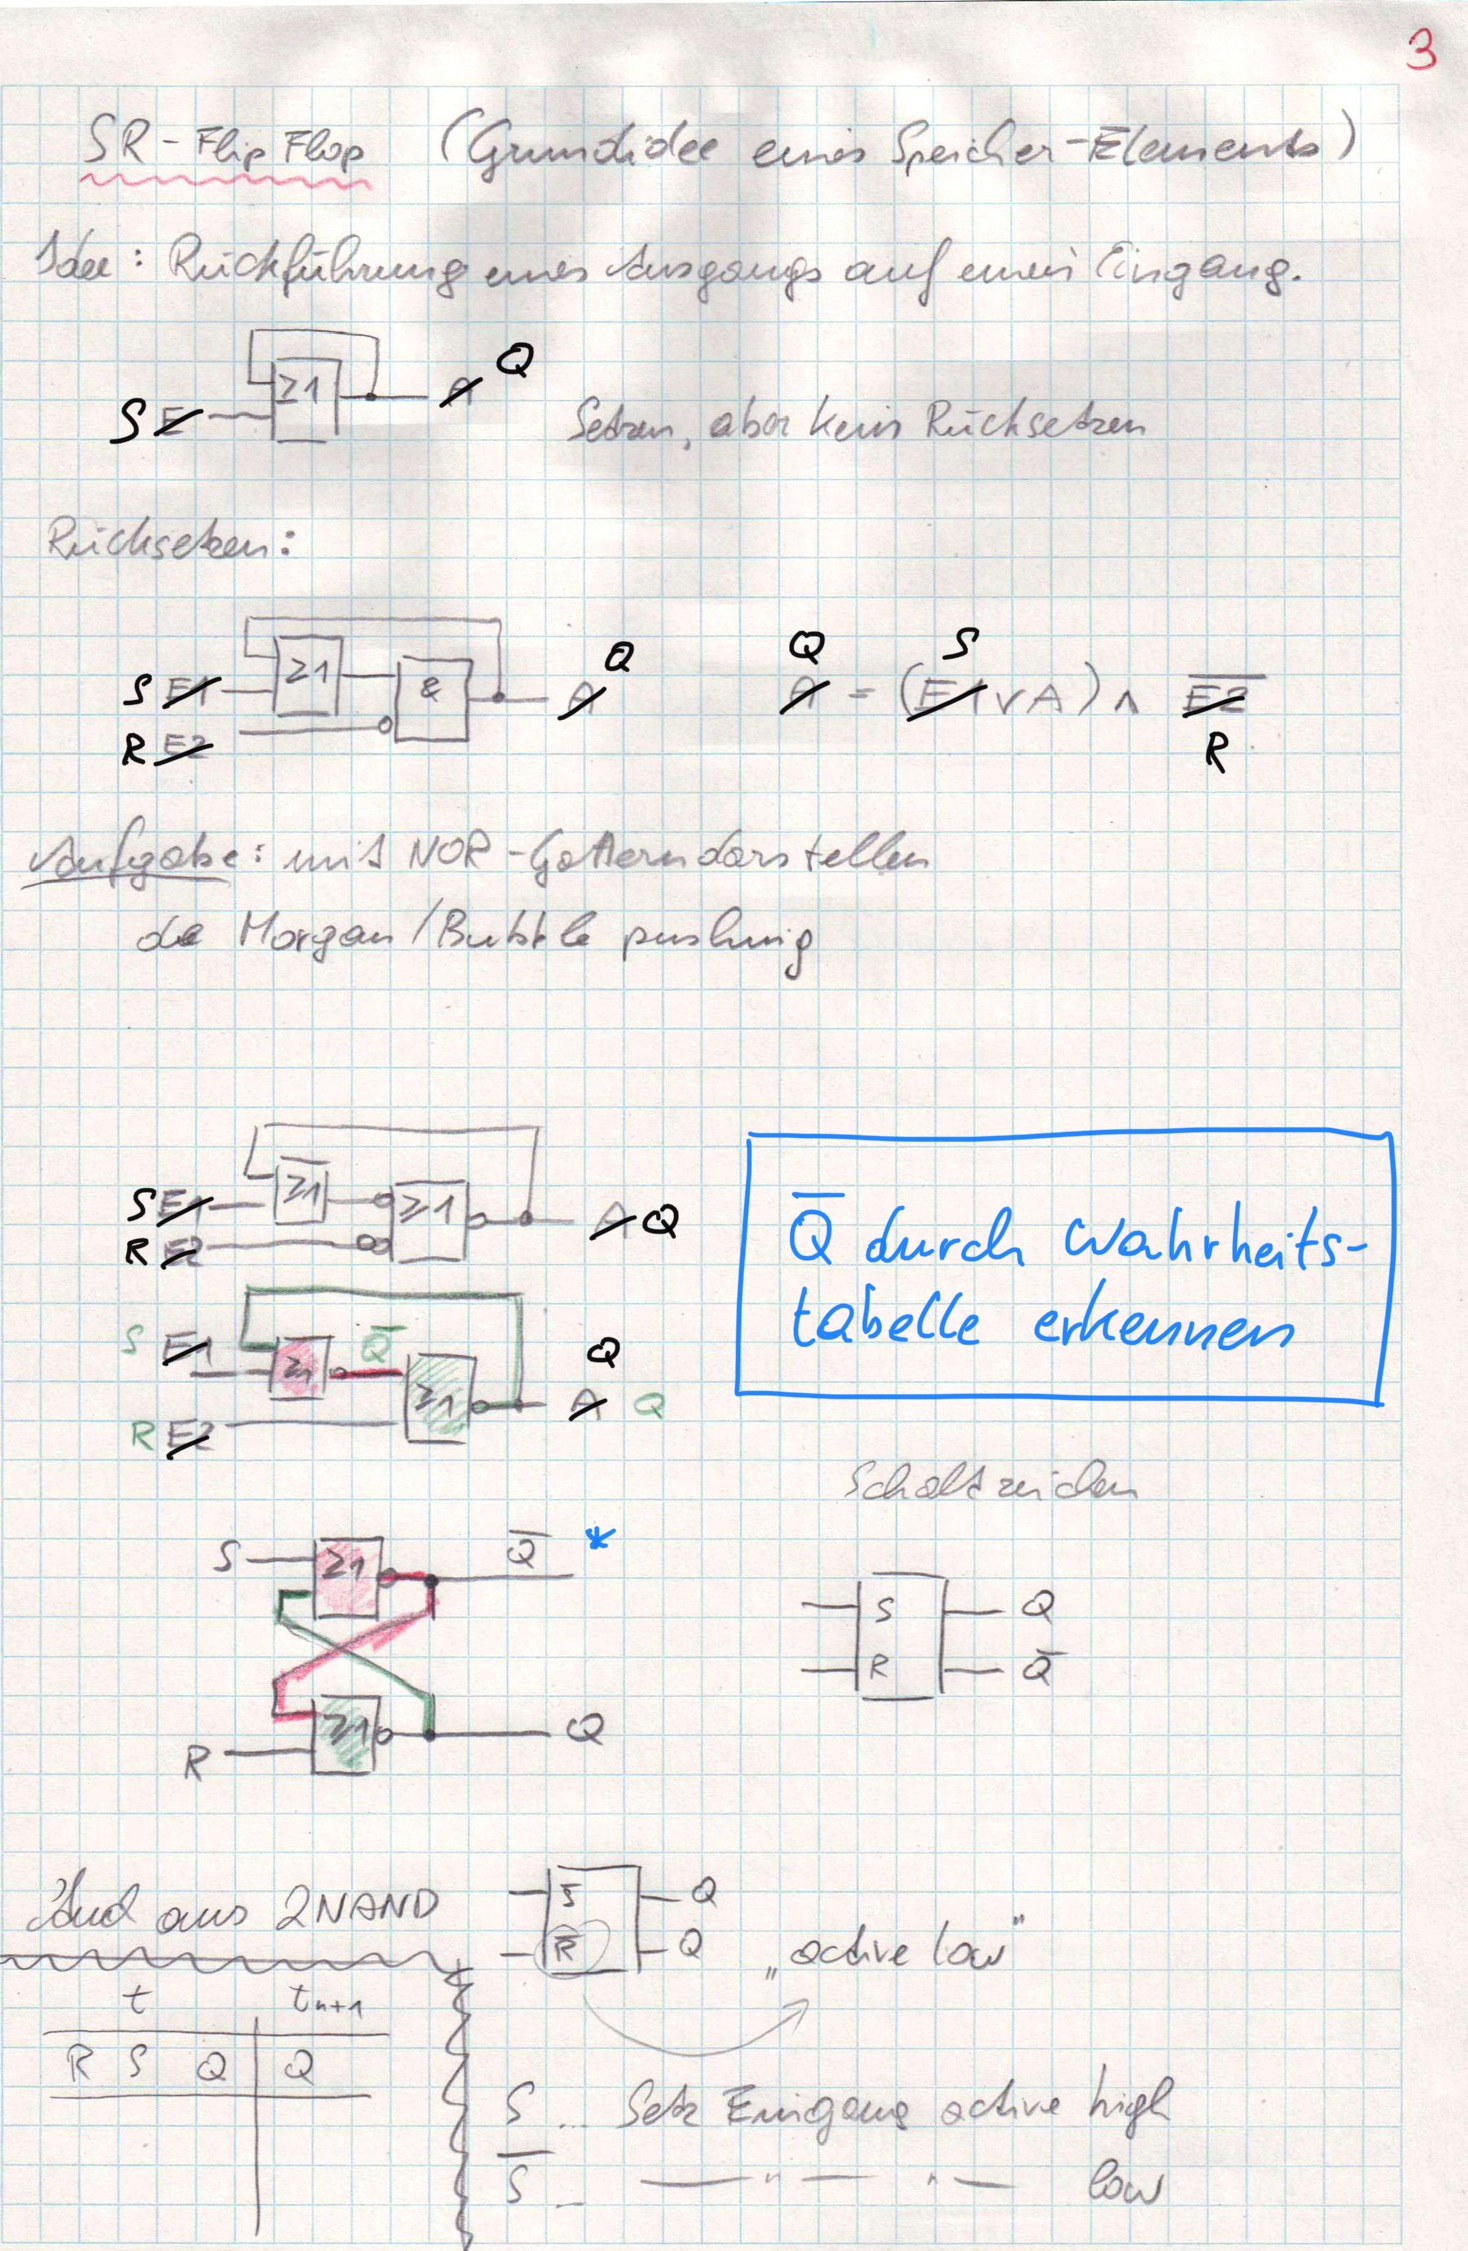 3
SR-Flip Flop (Grundidee eines Speicher-Elements)
Idee: Rückführung eines Ausgangs auf einen Eingang.
Q
≥1 A
S E
Setzen, aber kein Rücksetzen
Rücksetzen:
S E1 ≥1 & A Q
R E2
Q S
A = (E1 ∨ A) ∧ E̅2̅
R
Aufgabe: mit NOR-Gattern darstellen
de Morgan/Bubble pushing
S E1 ≥1 ≥1 A Q
R E2
Q̅ durch Wahrheits-
tabelle erkennen
S E1 ≥1 Q̅ ≥1 Q
R E2 A Q
Schaltzeichen
S ≥1 Q̅ *
R ≥1 Q
S Q
R Q̅
Und aus 2NAND
S̅ Q
R̅ Q
„active low"
t tn+1
R S Q Q
S ... Setz Eingang active high
S̅ .. — " — " — low